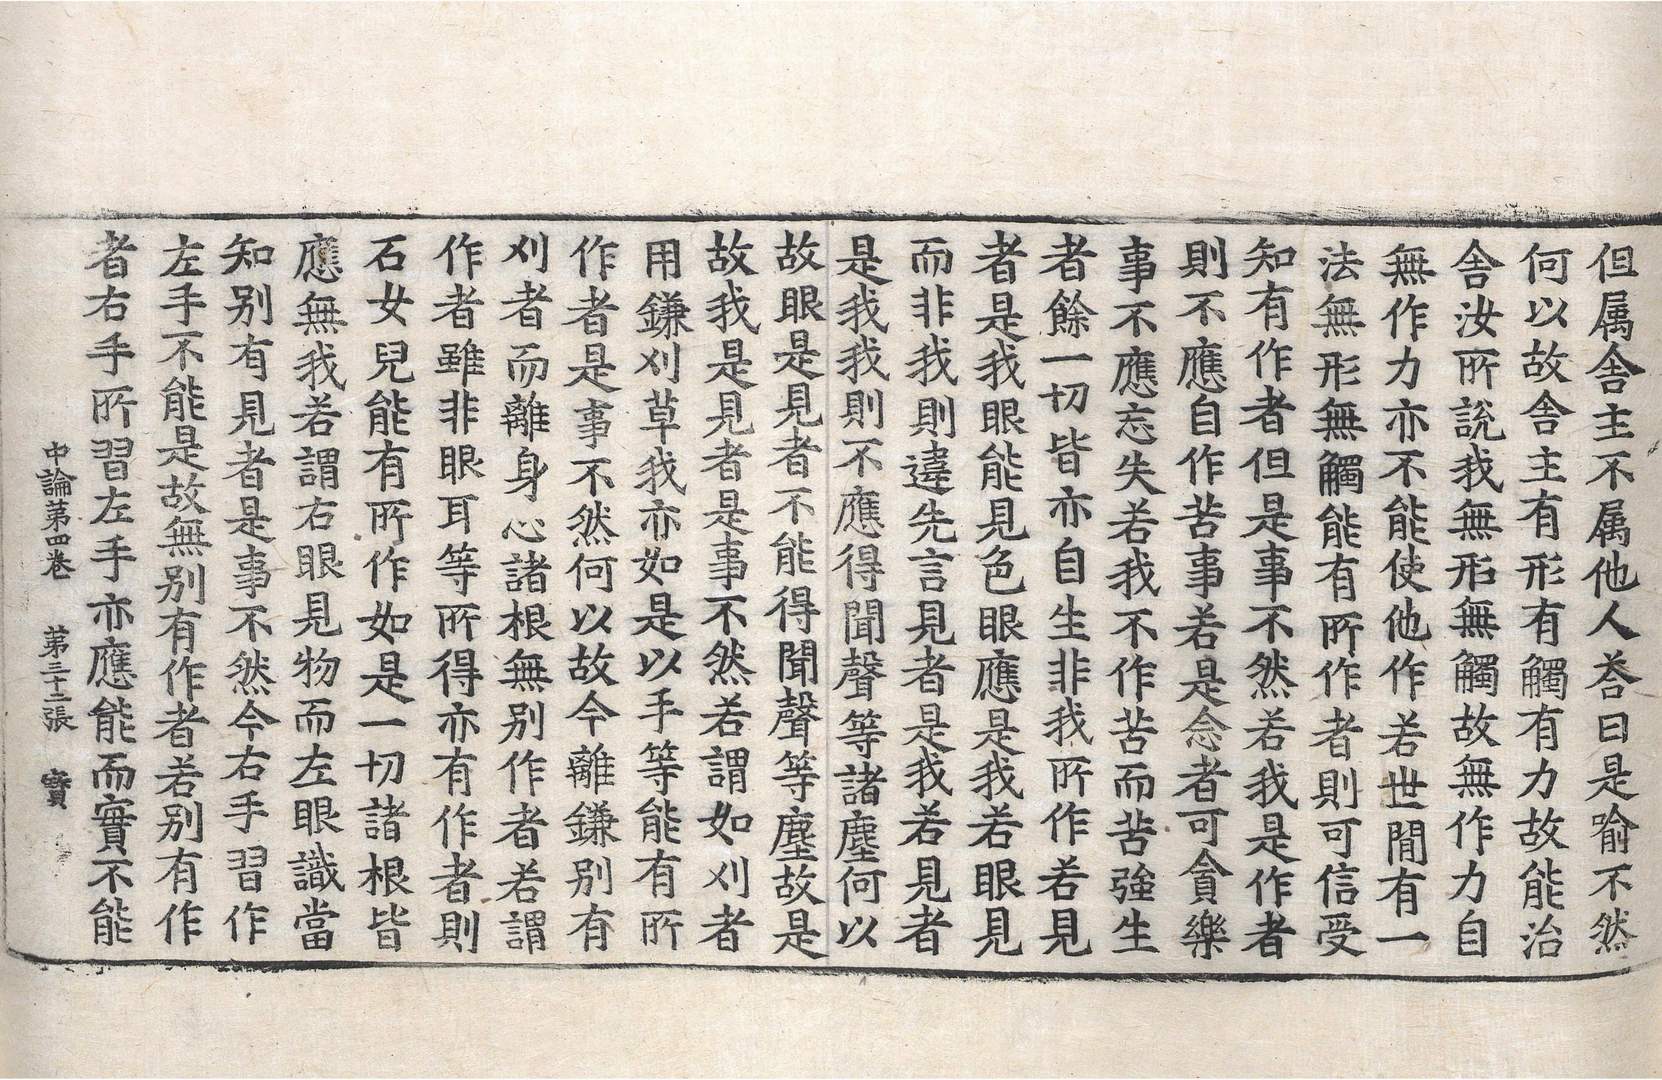 但属舎主不属他人荅曰是喻不然
何以故舎主有形有觸有力故能治
舎汝所說我無形無觸故無作力自
無作力亦不能使他作若世間有一
法無形無觸能有所作者則可信受
知有作者但是事不然若我是作者
則不應自作苦事若是念者可貪樂
事不應忘失若我不作苦而苦強生
者餘一切皆亦自生非我所作若見
者是我眼能見色眼應是我若眼見
而非我則違先言見者是我若見者
是我我則不應得聞聲等諸塵何以
故眼是見者不能得聞聲等塵故是
故我是見者是事不然若謂如刈者
用鎌刈草我亦如是以手等能有所
作者是事不然何以故今離鎌別有
刈者而離身心諸根無別作者若謂
作者雖非眼耳等所得亦有作者則
石女兒能有所作如是一切諸根皆
應無我若謂右眼見物而左眼識當
知別有見者是事不然今右手習作
左手不能是故無別有作者若別有作
者右手所習左手亦應能而實不能
中論第四卷 第三十二張 寶